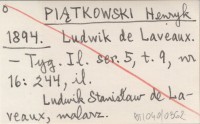 PIĄTKOWSKI Henryk
1894. Ludwik de Laveaux.
— Tyg. Il. ser. 5, t. 9, nr
16: 244, il.
Ludwik Stanisław de La-
veaux, malarz.